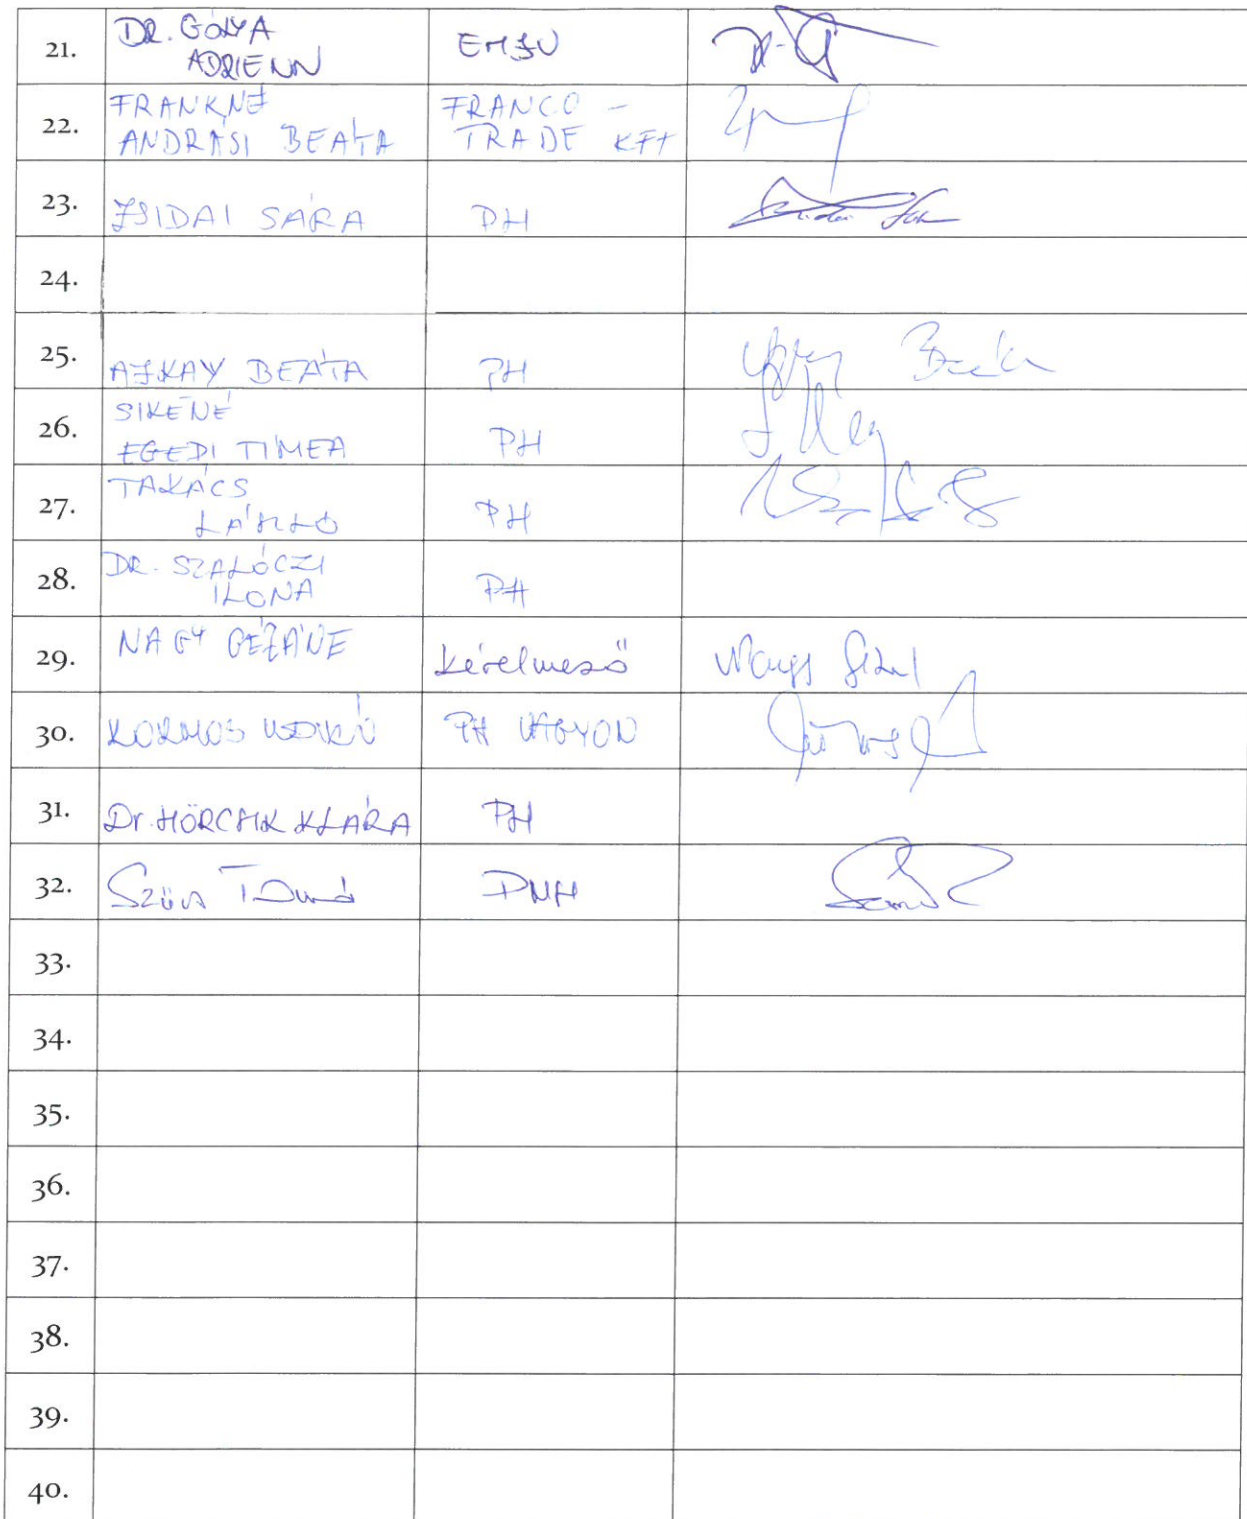 21. DR. GÓLYA EMJU
ADRIENN
22. FRANKNÉ FRANCO -
ANDRÁSI BEÁTA TRADE KFT
23. ZSIDAI SÁRA PH
24.
25. AJKAY BEÁTA PH
26. SIKÉNÉ
EGEDI TÍMEA PH
27. TAKÁCS
LÁSZLÓ PH
28. DR. SZALÓCZI
ILONA PH
29. NAGY GÉZÁNÉ kérelmező
30. KORMOS ILDIKÓ PH VAGYON
31. Dr. HÖRCSIK KLÁRA PH
32. Szűcs Tamás
33.
34.
35.
36.
37.
38.
39.
40.